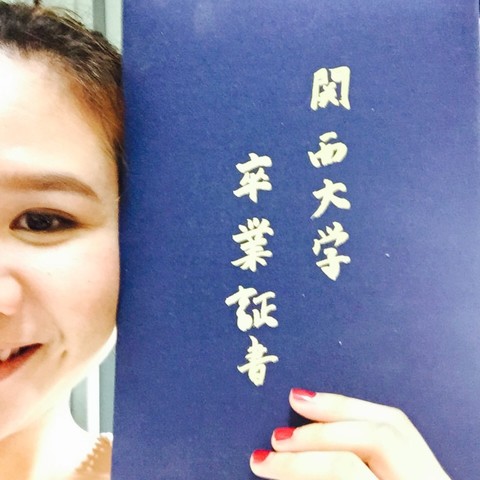 関西大学
卒業証書